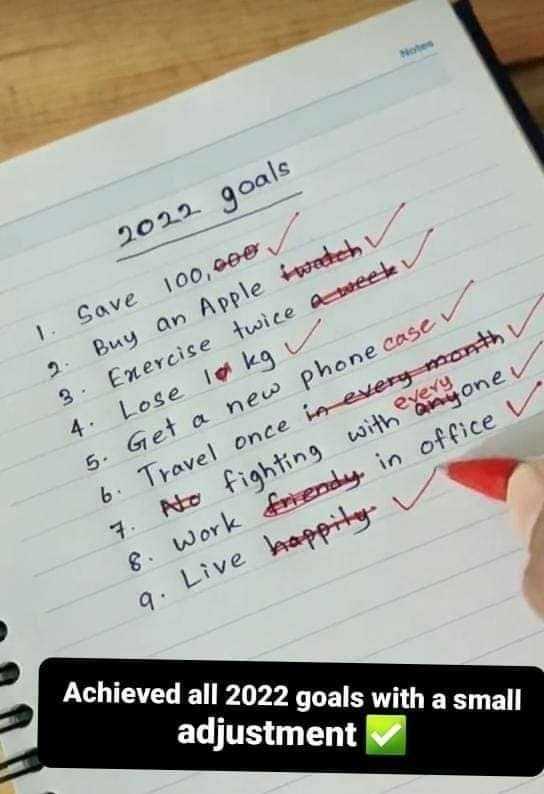 Notes
2022 goals
1. Save 100,000
2. Buy an Apple iwatch
3. Exercise twice a week
4. Lose 10 kg
5. Get a new phone case
6. Travel once in every month
every
7. No fighting with anyone
8. Work friendy in office
9. Live happily
Achieved all 2022 goals with a small
adjustment ✅